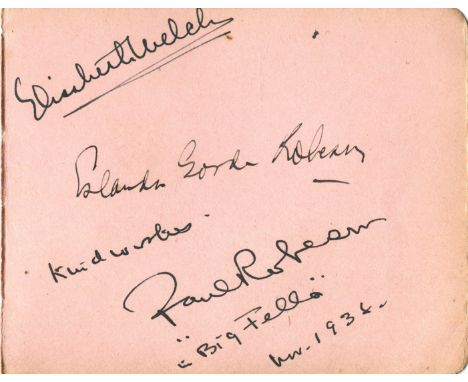 Elisabeth Welch
Eslanda Goode Robeson
Kind wishes.
Paul Robeson
"Big Fella"
1936